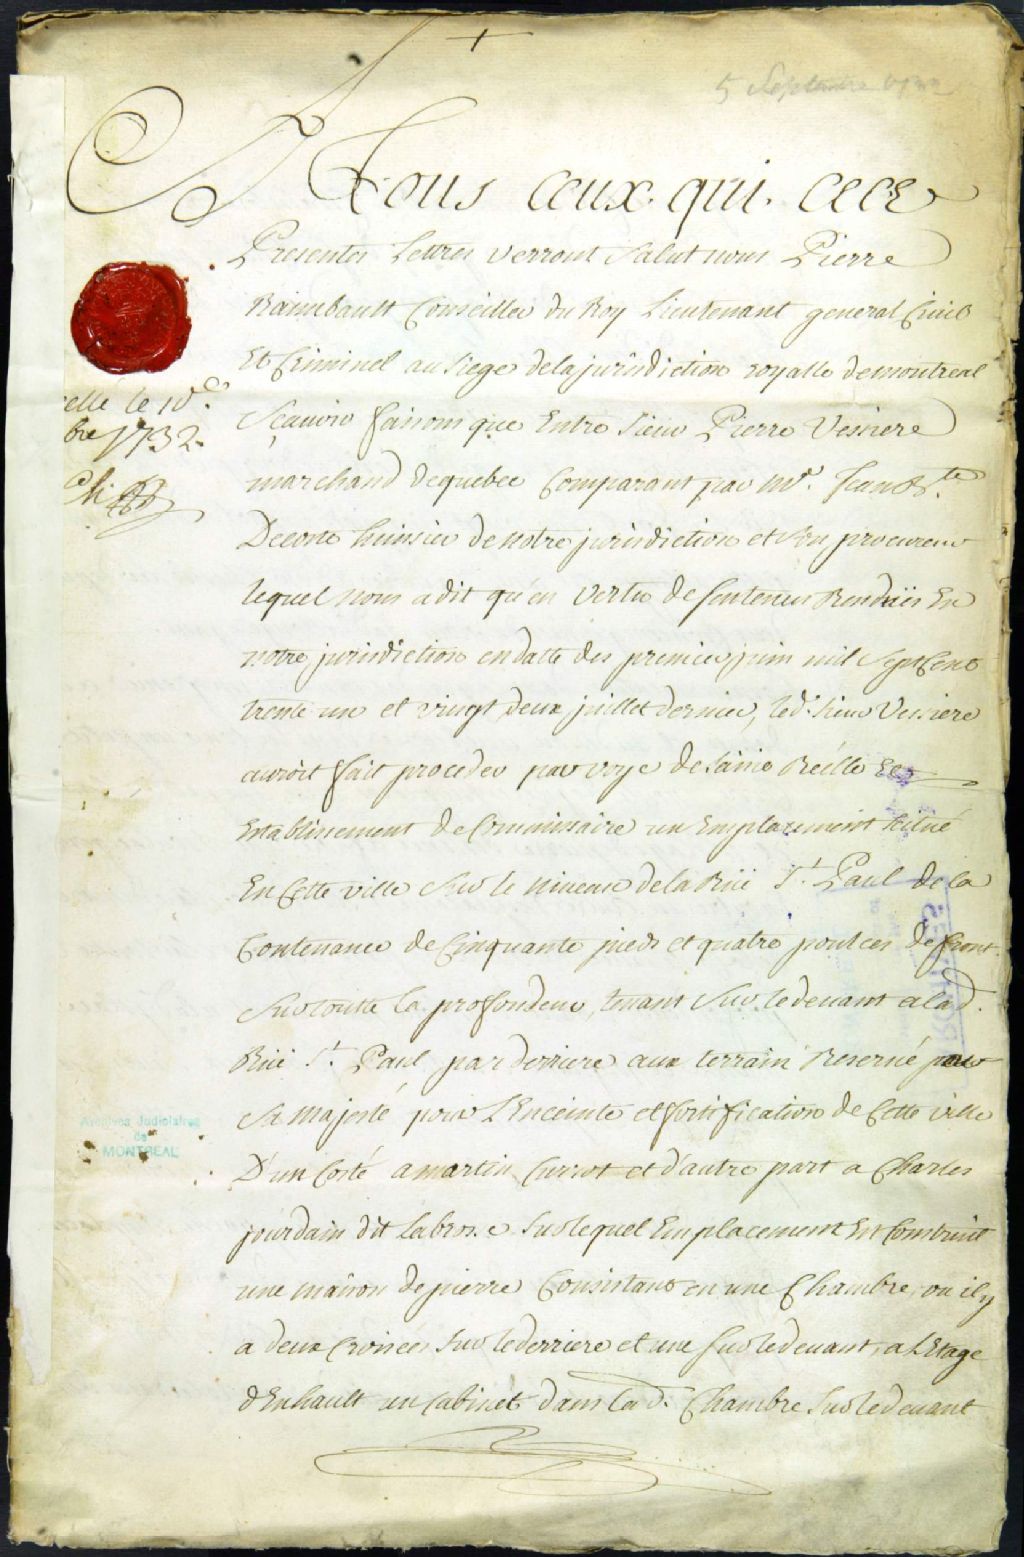 5 Septembre 1732
A Tous ceux qui ces
Presentes Lettres verront Salut nous Pierre
Raimbault Conseiller du Roy Lieutenant general Civil
Et Criminel au siege de la jurisdiction royalle de montreal
Scavoir faisons que Entre Sieur Pierre Vessiere
marchand de quebec Comparant par Mr. Jean Bte
Decoste huissier de notre jurisdiction et son procureur
lequel nous a dit qu'en vertu de sentences Renduës En
notre jurisdiction en datte des premier juin mil Sept Cent
trente un et vingt deux juillet dernier, led. Sieur Vessiere
auroit fait proceder par voye de saisie Réelle Et
Establissement de Commissaire un Emplacement situé
En Cette ville sur le niveau de la Rüe St. Paul de la
Contenance de Cinquante pieds et quatre poulces de front
sur toutte la profondeur, tenant sur le devant a lad.
Rüe St. Paul par derriere aux terrain Reservé par
Sa Majesté pour L'Enceinte et fortification de Cette ville
D'un Costé a martin Curiot et d'autre part a Charles
jourdain dit Labrose sur lequel Emplacement Est Construit
une maison de pierre Consistant en une Chambre, ou il y
a deux Croisées sur le derriere et une sur le devant, a L'Etage
d'Enhault un Cabinet dans lad. Chambre sur le devant
ellé le 10e.
bre 1732.
Archives Judiciaires
de
MONTREAL